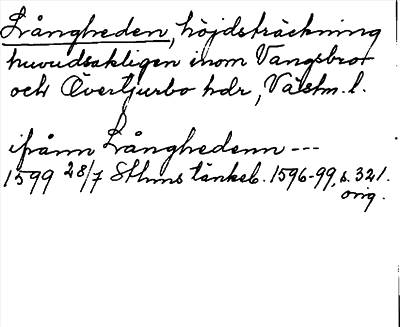 Långheden, höjdsträckning
huvudsakligen inom Vangsbro
och Övertjurbo hdr, Västm. l.
ifrånn Långhedenn ---
1599 28/7 Sthms tänkeb. 1596-99, s. 321.
orig.